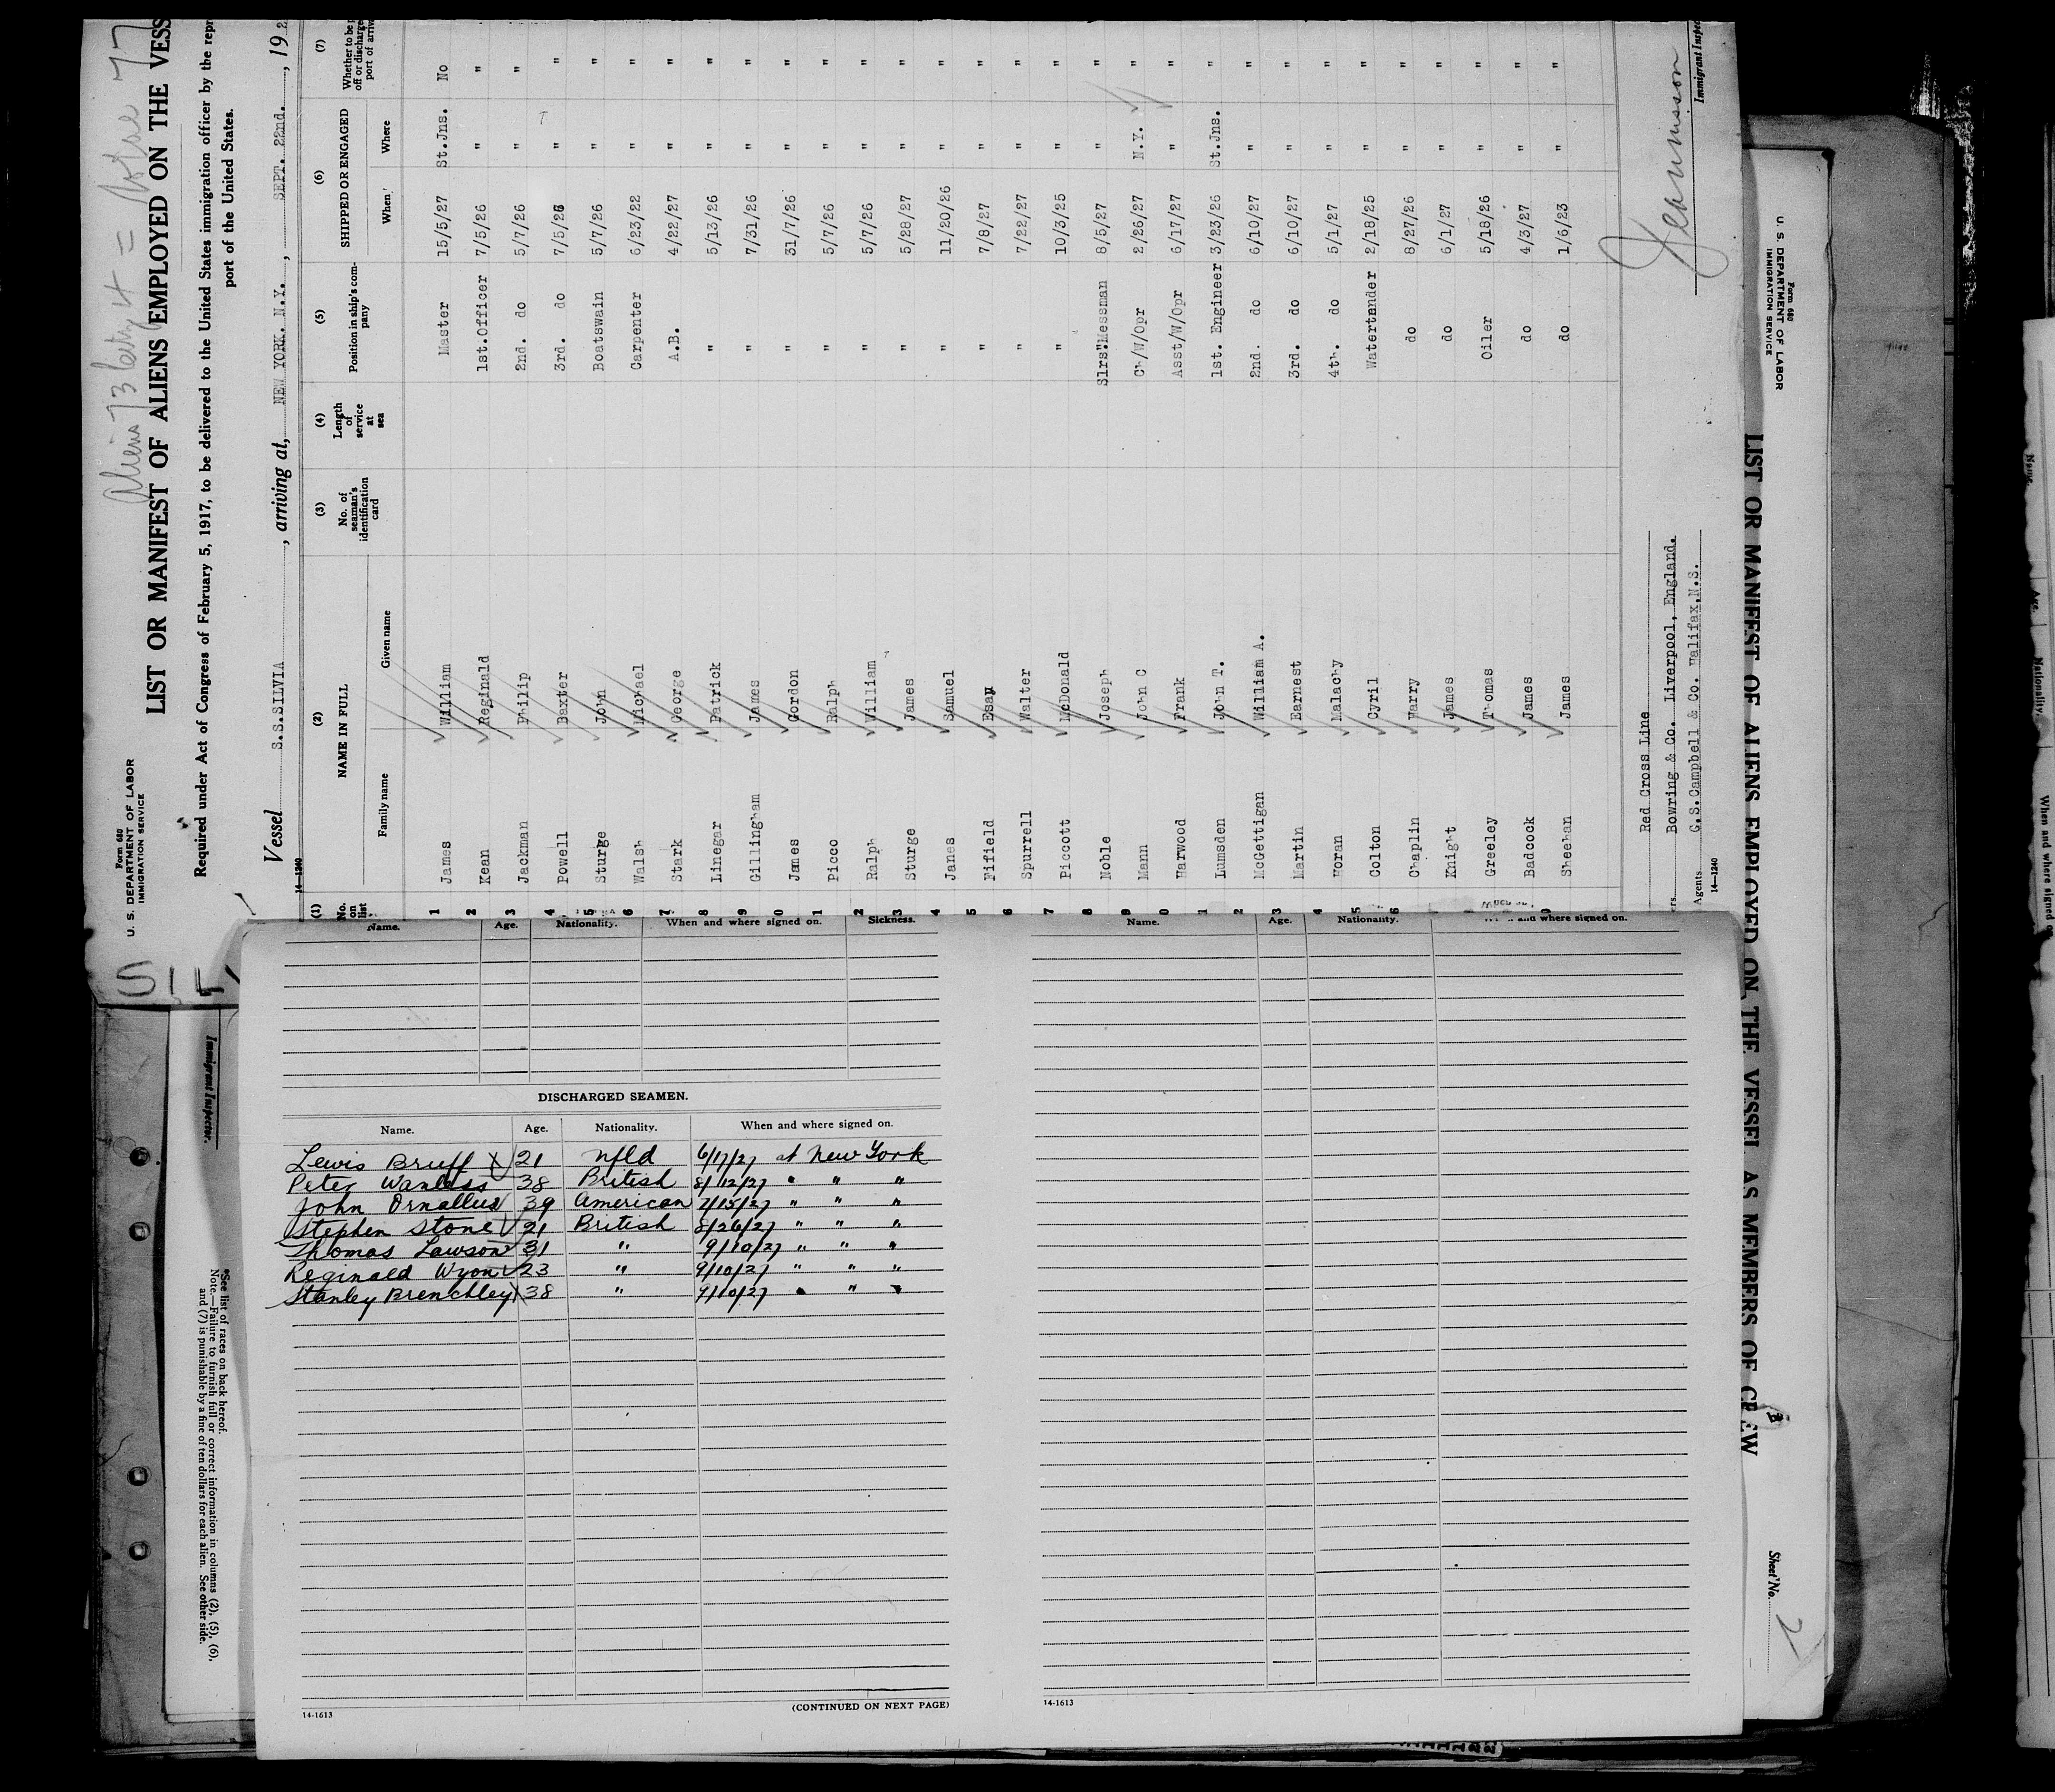 Form 680
U. S. DEPARTMENT OF LABOR
IMMIGRATION SERVICE
LIST OR MANIFEST OF ALIENS EMPLOYED ON THE VESS
Required under Act of Congress of February 5, 1917, to be delivered to the United States immigration officer by the repr
port of the United States.
Vessel S.S.SILVIA, arriving at, NEW YORK. N.Y., SEPT. 22nd., 192
14-1240
(1) (2) (3) (4) (5) (6) (7)
No. on list NAME IN FULL No. of seaman's identification card Length of service at sea Position in ship's company SHIPPED OR ENGAGED Whether to be off or discharge port of arriv
Family name Given name When Where
1 James William Master 15/5/27 St.Jns. No
2 Kean Reginald 1st.Officer 7/5/26 " "
3 Jackman Philip 2nd. do 5/7/26 " "
4 Powell Baxter 3rd. do 7/5/26 " "
5 Sturge John Boatswain 5/7/26 " "
6 Walsh Michael Carpenter 6/23/22 " "
7 Stark George A.B. 4/22/27 " "
8 Linegar Patrick " 5/13/26 " "
9 Gillingham James " 7/31/26 " "
0 James Gordon " 31/7/26 " "
1 Picco Ralph " 5/7/26 " "
2 Ralph William " 5/7/26 " "
3 Sturge James " 5/28/27 " "
4 Janes Samuel " 11/20/26 " "
5 Fifield Esau " 7/8/27 " "
6 Spurrell Walter " 7/22/27 " "
7 Piccott McDonald " 10/3/25 " "
8 Noble Joseph Slrs"Messman 8/5/27 " "
9 Mann John C Ch/W/Opr 2/26/27 N.Y. "
0 Harwood Frank Asst/W/Opr 6/17/27 " "
1 Lumsden John T. 1st. Engineer 3/23/26 St.Jns. "
2 McGettigan William A. 2nd. do 6/10/27 " "
3 Martin Earnest 3rd. do 6/10/27 " "
4 Horan Malachy 4th. do 5/1/27 " "
5 Colton Cyril Watertender 2/18/25 " "
6 Chaplin Harry do 8/27/26 " "
Knight James do 6/1/27 " "
Greeley Thomas Oiler 5/18/26 " "
Badcock James do 4/3/27 " "
Sheehan James do 1/6/23 " "
Red Cross Line
Bowring & Co. Liverpool, England.
Agents G.S.Campbell & Co. Halifax.N.S.
14-1240
Immigrant Inspe
SIL
Name. Age. Nationality. When and where signed on. Sickness.
DISCHARGED SEAMEN.
Name. Age. Nationality. When and where signed on.
Lewis Bruff 21 nfld 6/17/27 at New York
Peter Wanless 38 British 8/12/27 " " "
John Ornallus 39 American 7/15/27 " " "
Stephen Stone 21 British 8/26/27 " " "
Thomas Lawson 31 " 9/10/27 " " "
Reginald Wyon 23 " 9/10/27 " " "
Stanley Brenchley 38 " 9/10/27 " " "
14-1613
(CONTINUED ON NEXT PAGE)
Name. Age. Nationality. When and where signed on.
14-1613
Immigrant Inspector.
*See list of races on back hereof.
Note.—Failure to furnish full or correct information in columns (2), (5), (6),
and (7) is punishable by a fine of ten dollars for each alien. See other side.
Form 680
U. S. DEPARTMENT OF LABOR
IMMIGRATION SERVICE
LIST OR MANIFEST OF ALIENS EMPLOYED ON THE VESSEL AS MEMBERS OF CREW
Sheet No. 2
Name.
Age.
Nationality.
When and where signed o